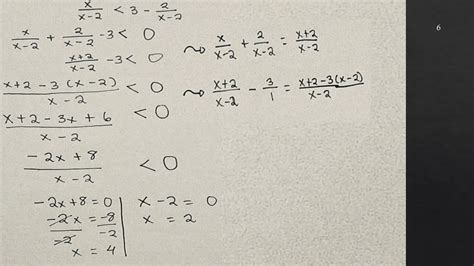 x/(x-2) < 3 - 2/(x-2)
x/(x-2) + 2/(x-2) - 3 < 0
(x+2)/(x-2) - 3 < 0 ⤳ x/(x-2) + 2/(x-2) = (x+2)/(x-2)
(x+2-3(x-2))/(x-2) < 0 ⤳ (x+2)/(x-2) - 3/1 = (x+2-3(x-2))/(x-2)
(x+2-3x+6)/(x-2) < 0
(-2x+8)/(x-2) < 0
-2x+8=0 | x-2 = 0
-2x/-2 = -8/-2 | x = 2
x = 4
6